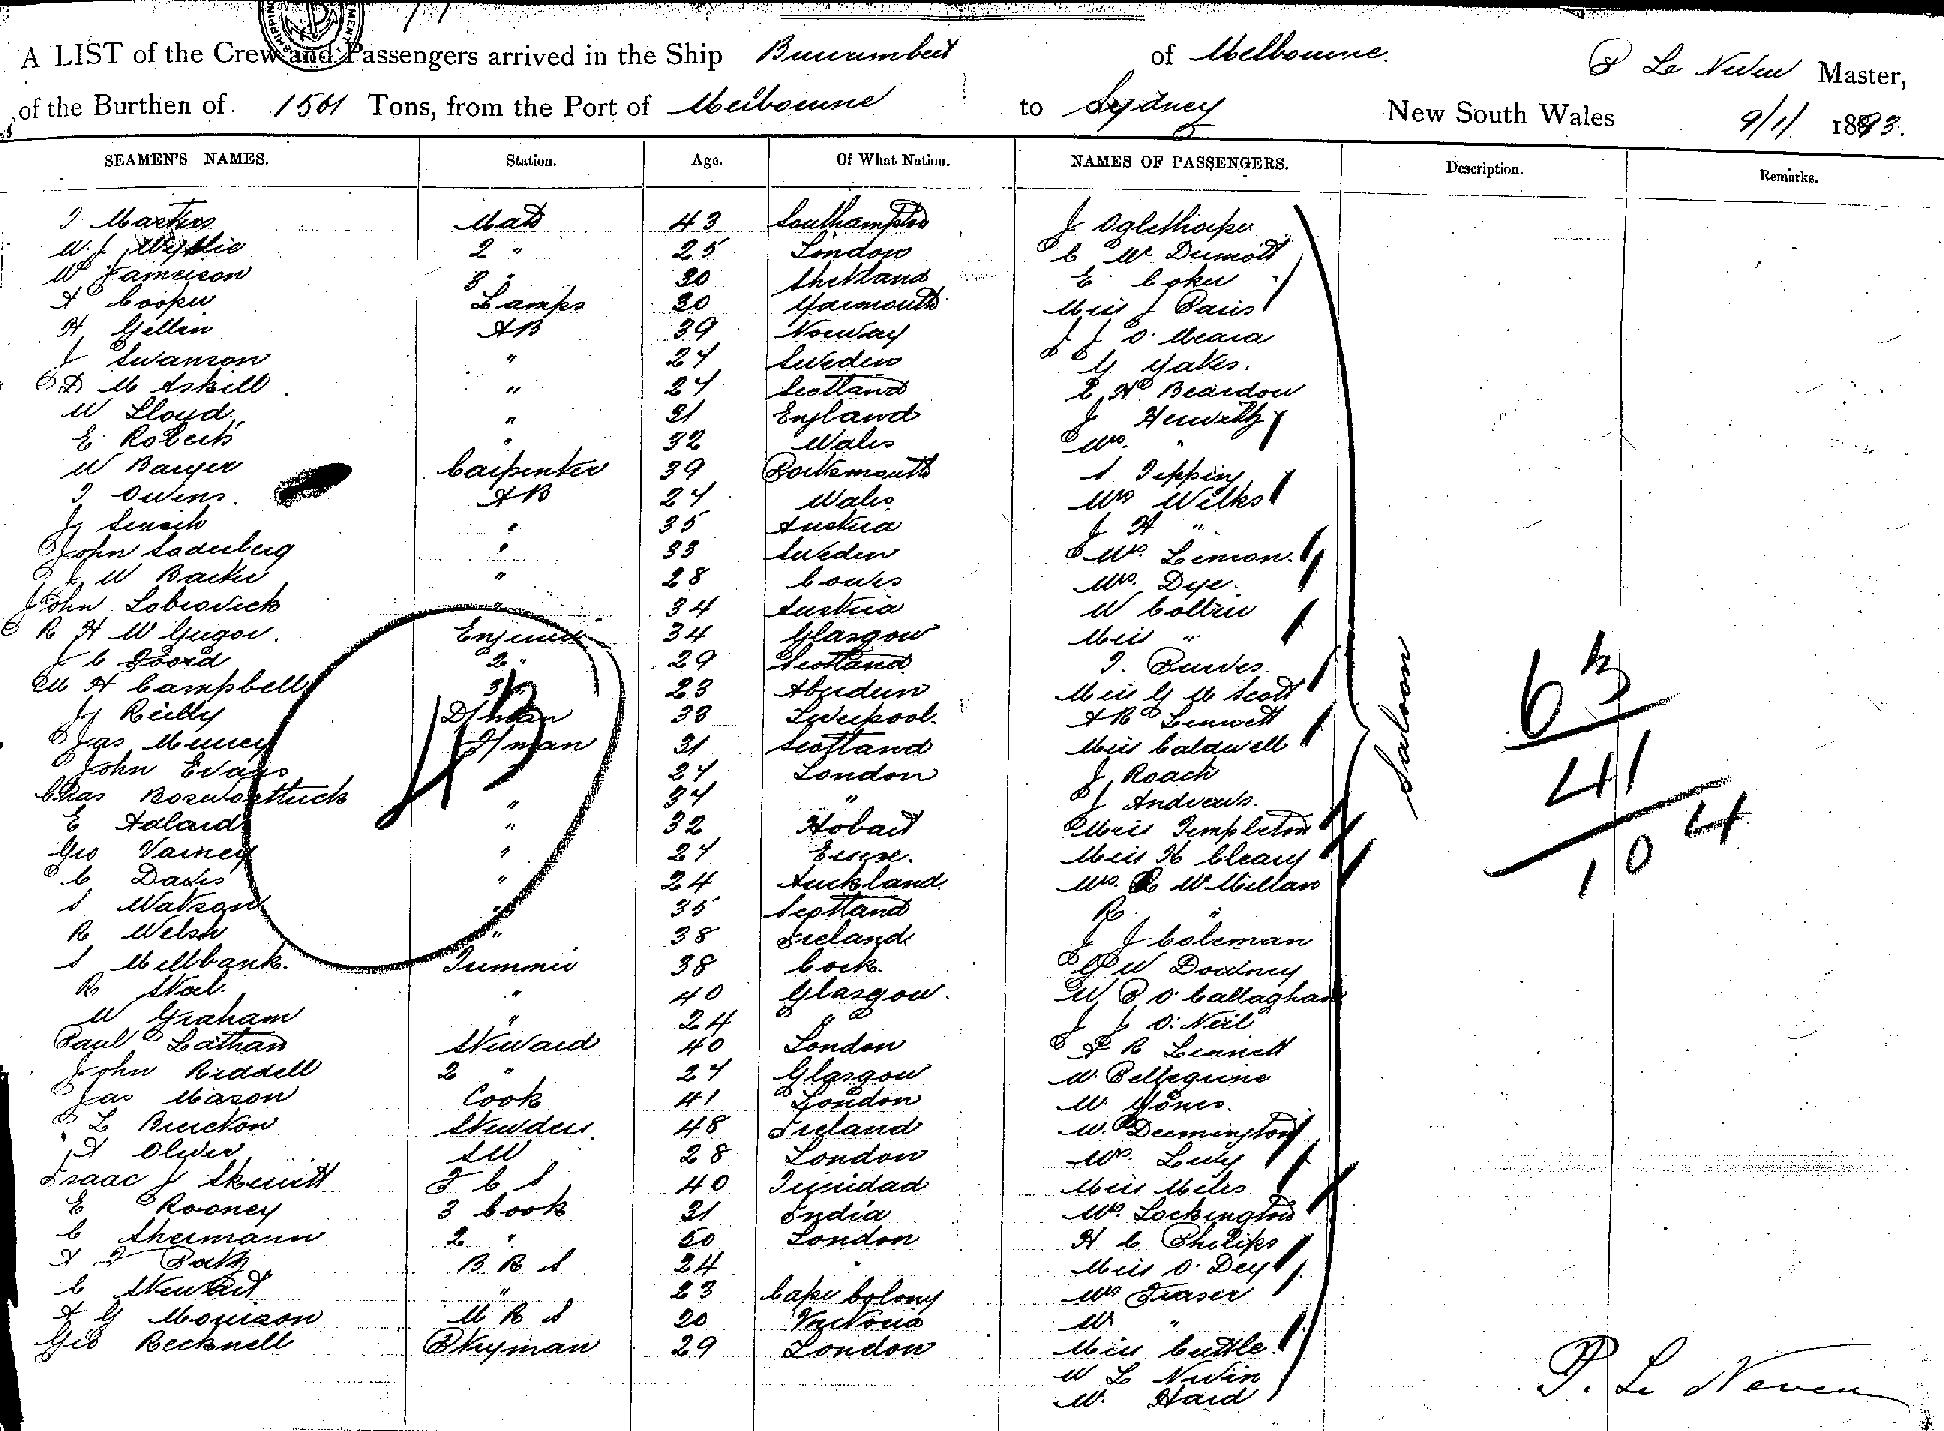 A LIST of the Crew and Passengers arrived in the Ship Burrumbeet of Melbourne. P Le Neveu Master,
of the Burthen of. Tons, from the Port of Melbourne to Sydney New South Wales 9/1/ 1893.
SEAMEN'S NAMES. Station. Age. Of What Nation. NAMES OF PASSENGERS. Description. Remarks.
Mate 43 Southampton J Oglethorpe
W. J. Wyllie 2 " 25 London W Dermott
W Jameison 3 " 30 Shetland E Coker
A Cooper Lamps 30 Yarmouth Miss J Paris
H Gillin AB 39 Norway J J O'Meara
J Swanson " 27 Sweden G Yates.
D M Askill " 27 Scotland E H Beardon
W Lloyd " 31 England J
E Roberts " 32 Wales Mrs. "
W Barger Carpenter 39 Portsmouth S Tipping
T Owens. AB 27 Wales Mrs Wilks
" 35 Austria J H "
John Soderberg " 33 Sweden Mrs. Lemon.
J W " 28 Cowes Mrs. Dye.
John Lobrovick " 34 Austria W Coltrie
R H McGregor. Engineer 34 Glasgow Miss "
J C Foord 2 " 29 Scotland T. Purves
M H Campbell 3 " 23 Aberdeen Miss G M Scott
Jy Reilly D/kman 38 Liverpool. A R Lennett
Jas F/man 31 Scotland Miss Caldwell
John Evans 27 London J Roach
Chas " 37 " J Andrews.
E Adlard " 32 Hobart Miss Templeton
Geo Varney " 27 Miss K Cleary
C Davis " 24 Auckland. Mrs. R McMillan
S Watson " 35 Scotland R. "
R Welsh " 38 Ireland J J Coleman
S Millbank. Trimmer 38 Cork G W Doudney
R " 40 Glasgow. W P O'Callaghan
W Graham " 24 " J J O'Neil
Paul Lathan Steward 40 London P R Lennett
John Riddell 2 " 27 Glasgow W. Pellegrine
Jas Mason Cook 41 London W Jones.
L Bureton Stewdess. 48 Ireland W. Dermington
A Oliver SW 28 London Mrs. Levy
Isaac J Skerritt F C S 40 Trinidad Miss Miles
E Rooney 3 Cook 31 India Mrs Lockington
C Shermann 2 " 60 London H C Philips
A F B R S 24 " Miss O'Dey
C Stewart " 23 Cape Colony Mrs Fraser
A G Morrison M R S 20 Victoria W "
Geo Becknell P/tryman 29 London Miss Cuttle.
W L Nevin
W. Hard
Saloon
43
63
41
104
P. Le Neveu